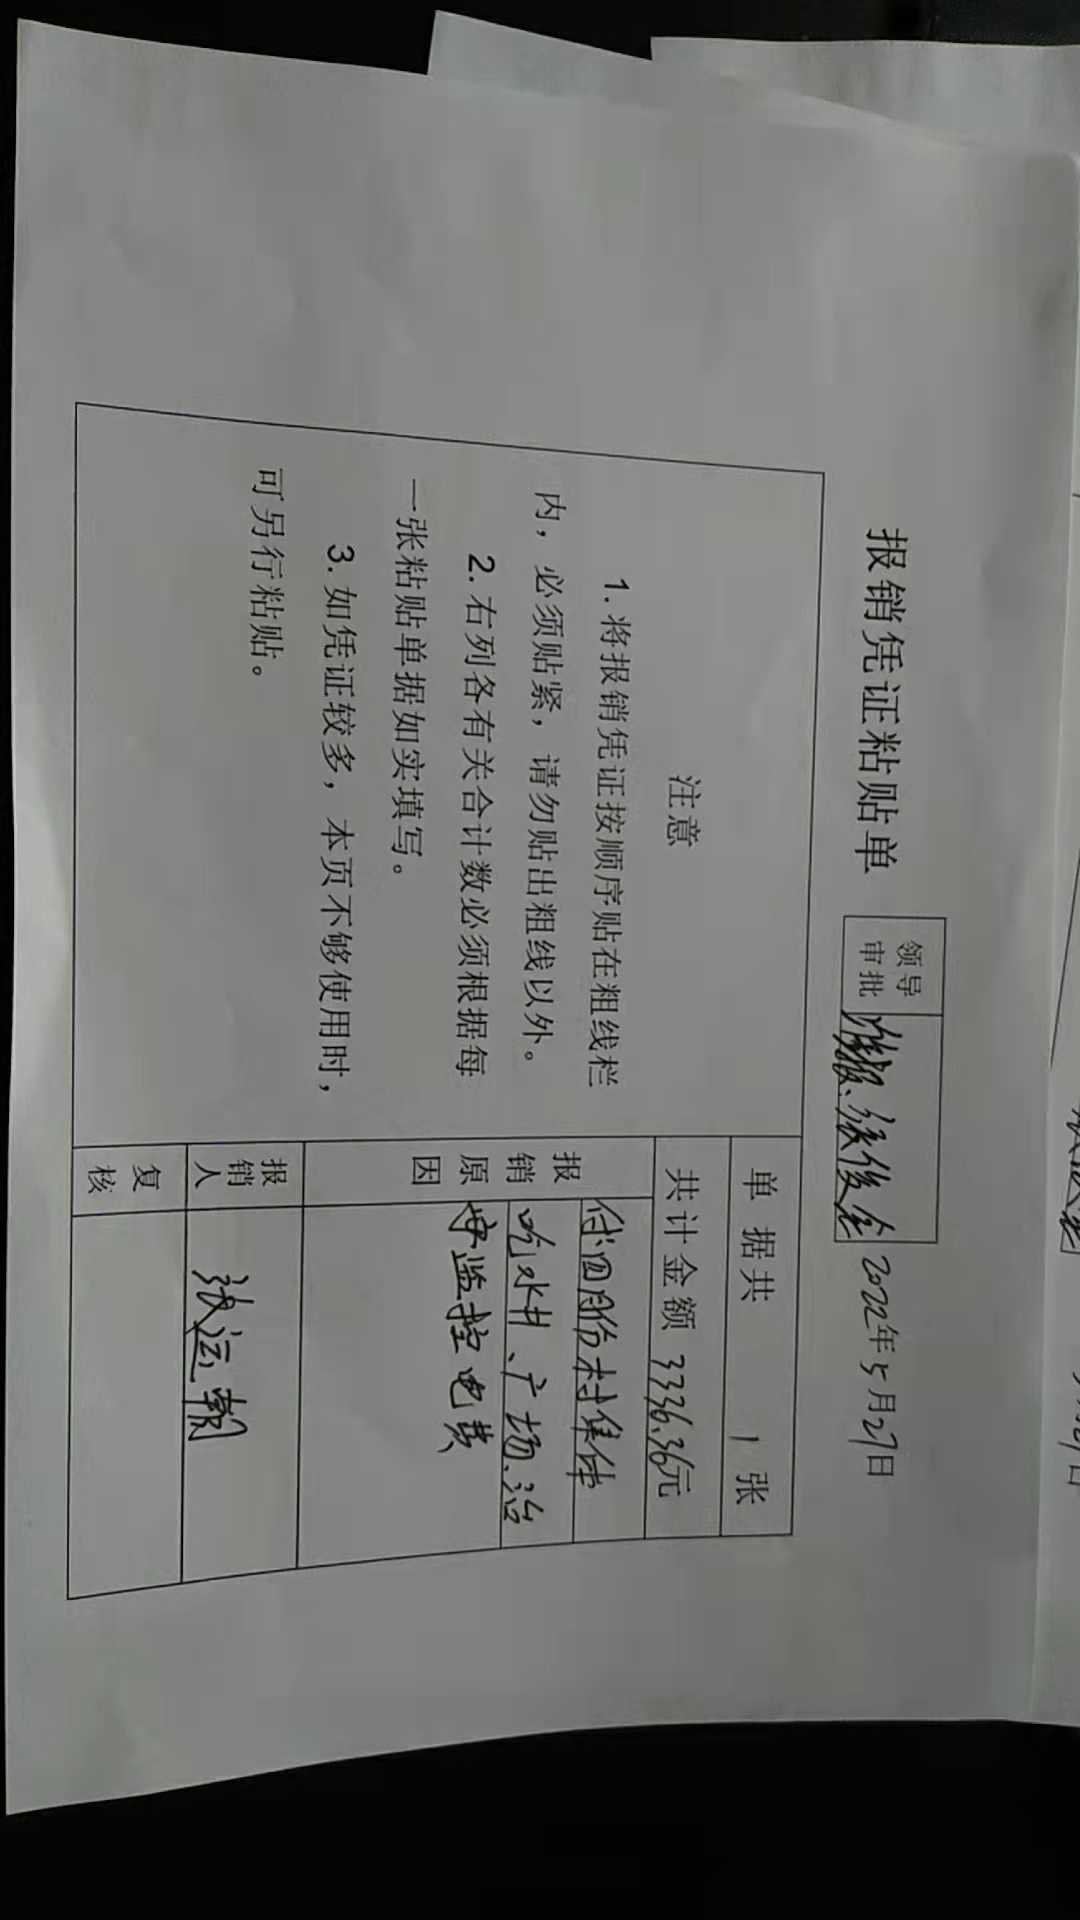 报销凭证粘贴单
领导
审批
准报.张俊全
2022年5月27日
注意
1. 将报销凭证按顺序贴在粗线栏
内，必须贴紧，请勿贴出粗线以外。
2. 右列各有关合计数必须根据每
一张粘贴单据如实填写。
3. 如凭证较多，本页不够使用时，
可另行粘贴。
单据共 1 张
共计金额 3336.36元
报销原因
付四月份村集体
吃水井、广场、治
安监控电费
报销人
张运
复核